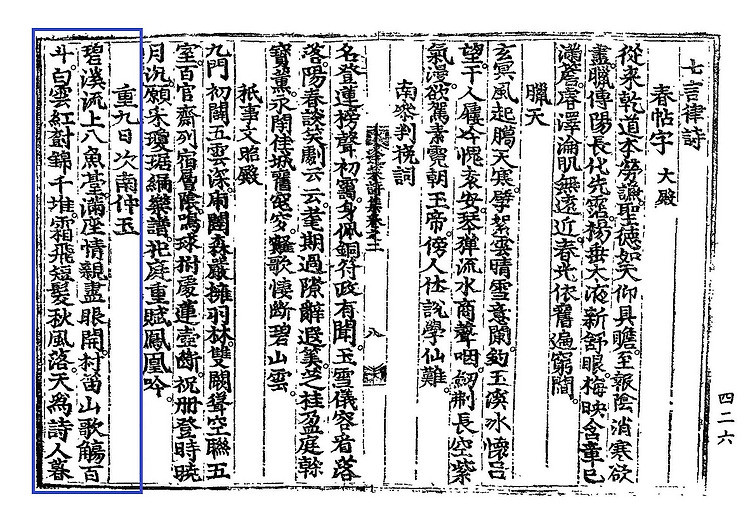 七言律詩
春帖字 大殿
從來乾道本勞謙聖德如天仰具瞻至報陰消寒欲
盡臘傳陽長代先 楊垂太液新舒眼梅映含章已
滿簷 澤淪肌無遠近春光依舊遍窮閻
臘天
玄冥風起臘天寒擘絮雲晴雪意闌鉤玉溪氷懷呂
望干人屨冷愧袁安琴彈流水商聲咽 長空紫
氣漫欲駕素鸞朝玉帝傍人休說學仙難
南參判挽詞
八
名登蓮榜聲初靄身佩銅符政有聞玉雪儀容看落
落陽春談笑劇云云耄期過隙辭遐筭芝桂盈庭
寶薰永閉佳城舊窀穸薤歌悽斷碧山雲
祗事文昭殿
九門初闢五雲深廟闥森嚴擁羽林雙闕聳空聯五
室百官齋列宿 陰鳴球拊 蓮壺 祝册登時曉
月沉願采瓊琚編樂譜祀庭重賦鳳凰吟
重九日次南仲玉
碧溪流上八魚臺滿座情親盡眼開村笛山歌觴百
斗白雲紅樹錦千堆霜飛短髮秋風落天爲詩人暮
四二六